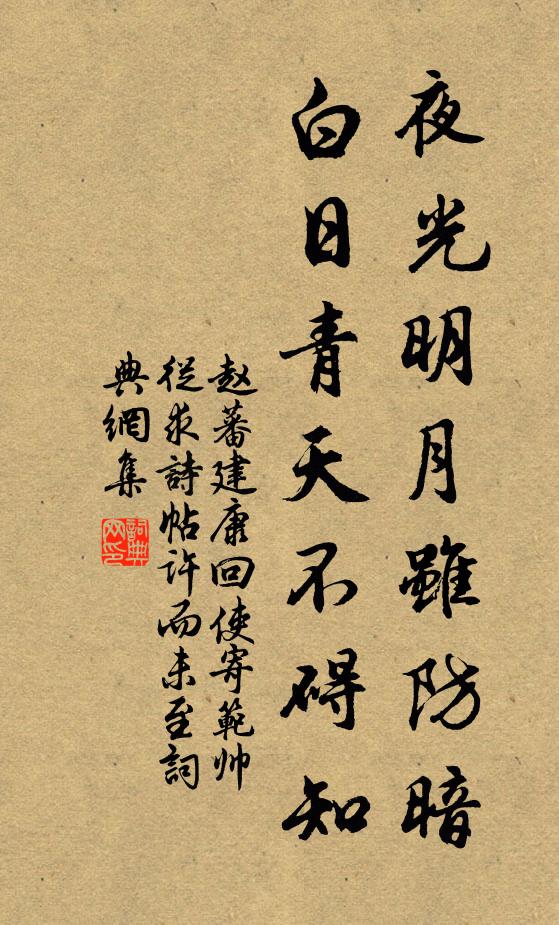 夜光明月雖防暗
白日青天不碍知
赵蕃建康回使寄範帅
從求詩帖許而未至詞
典網集
詞典网印